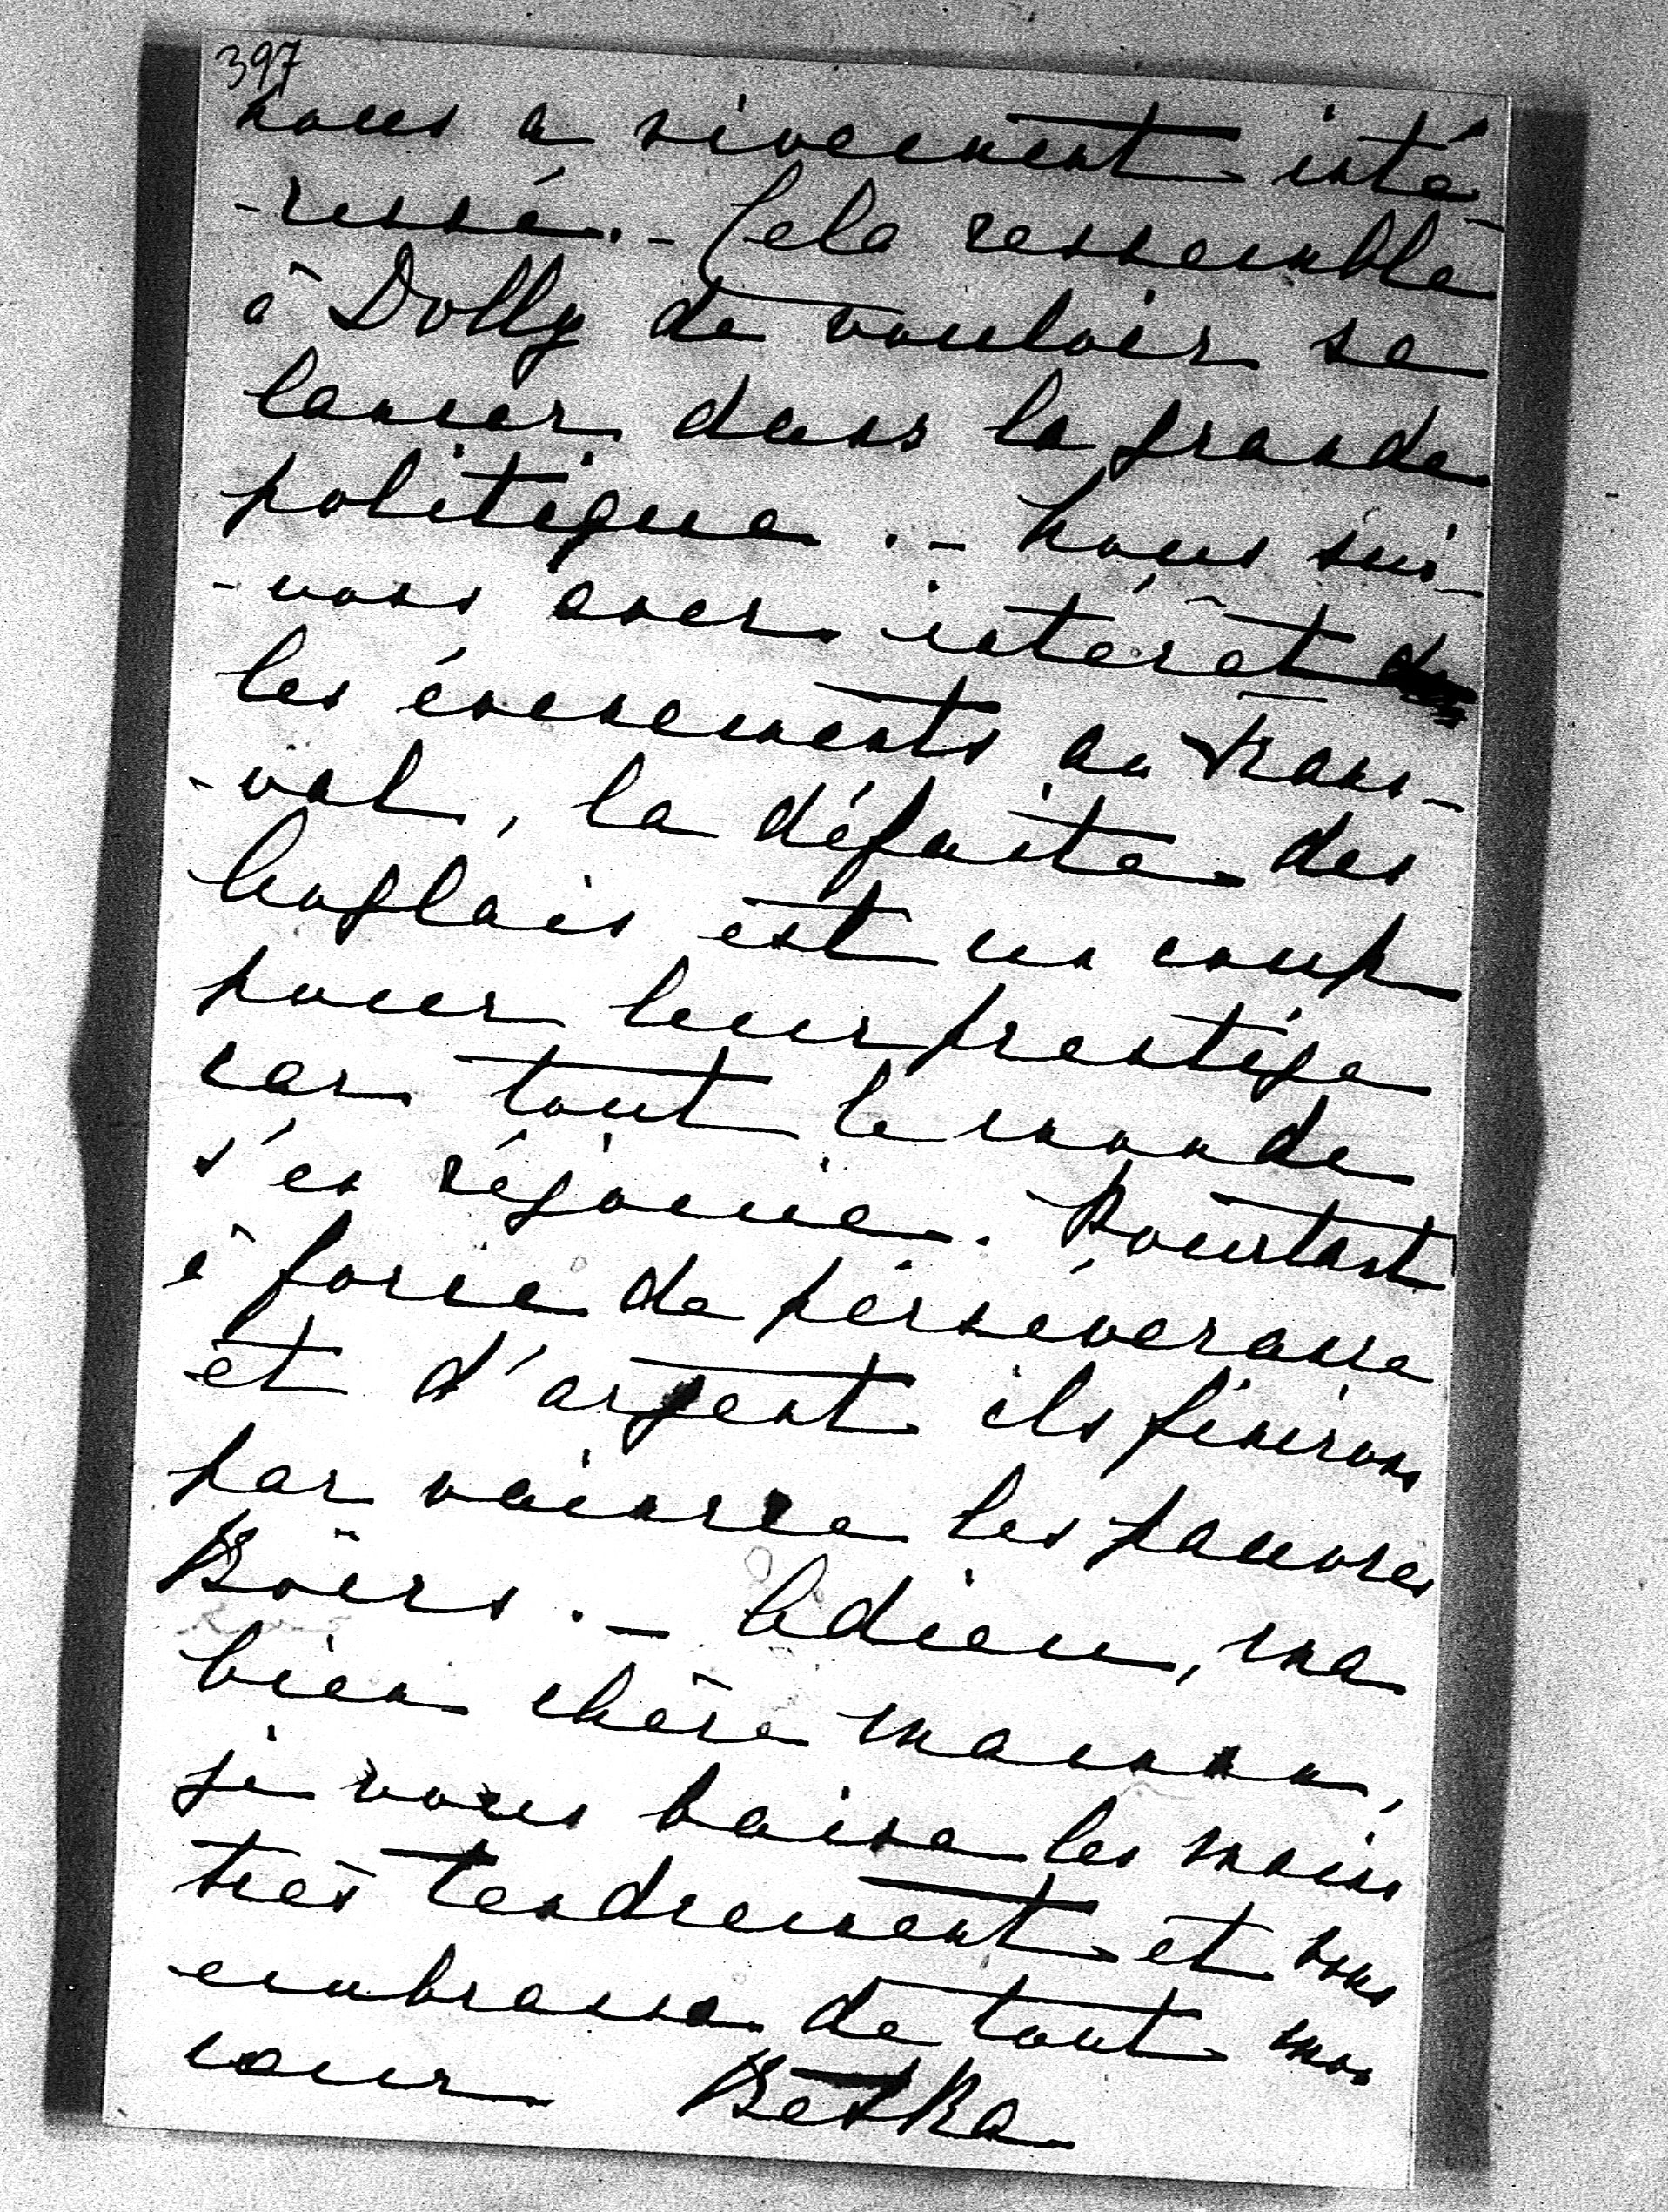 397
nous a vivement inté-
-ressé. - Cela ressemble
à Dolly de vouloir se
lancer dans la grande
politique. - Nous sui-
-vons avec intérêt
les évenements au Trans-
-val, la défaite des
Anglais est un coup
pour leur prestige
car tout le monde
s'en réjouie. Pourtant
à force de perséverance
et d'argent ils finirons
par vaincre les pauvres
Boërs. - Adieu, ma
bien chère maman,
je vous baise les mains
très tendrement et vous
embrasse de tout mon
cœur Betka